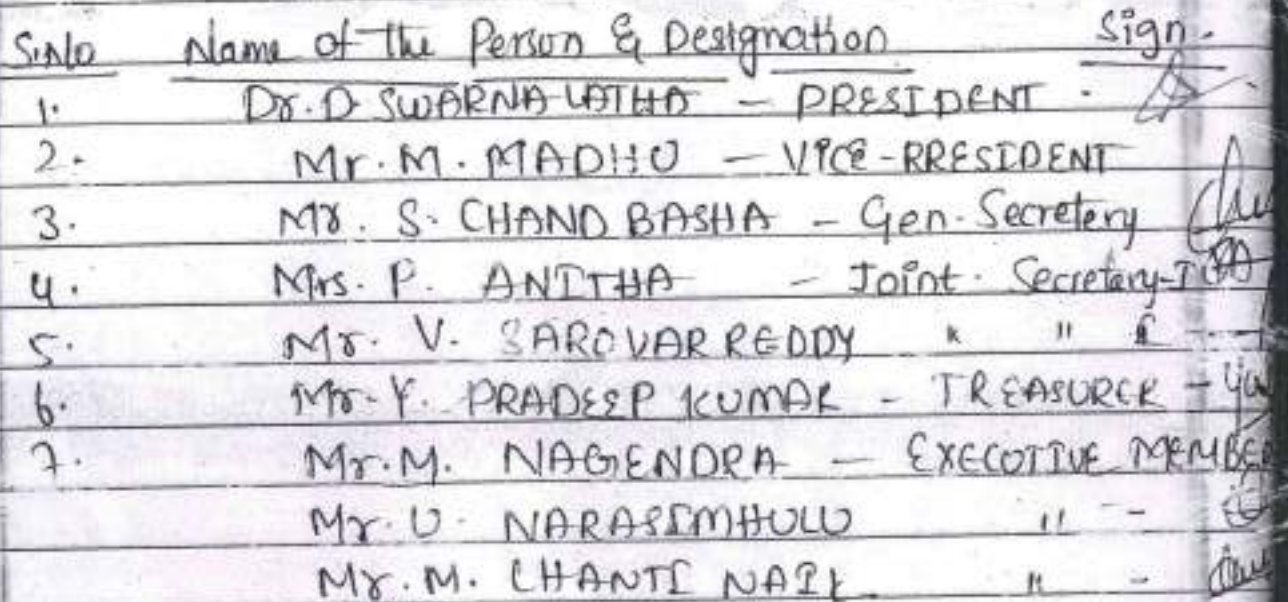 S.No Name of the Person & Designation Sign.
1. Dr. D SWARNA LATHA - PRESIDENT -
2. Mr. M. MADHU - VICE-RRESIDENT
3. Mr. S. CHAND BASHA - Gen. Secretery
4. Mrs. P. ANITHA - Joint. Secretary-I
5. Mr. V. SAROVAR REDDY " "
6. Mr. Y. PRADEEP KUMAR - TREASURER -
7. Mr. M. NAGENDRA - EXECOTIVE MEMBER
Mr. U. NARASIMHULU " -
Mr. M. CHANTI NAIK " -